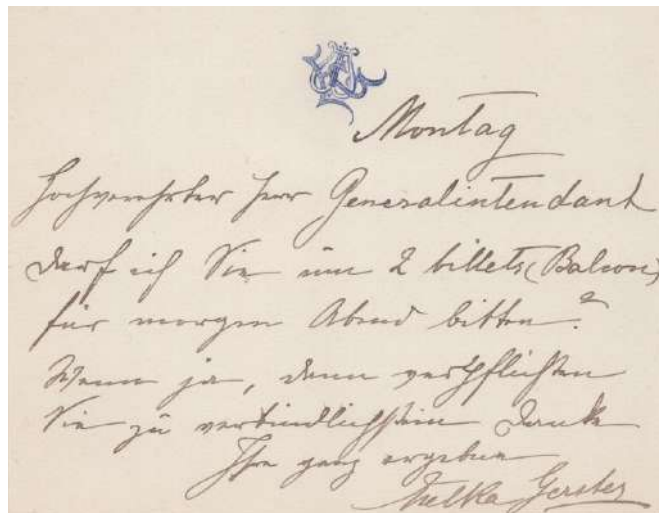 Montag
Hochverehrter Herr Generalintendant
darf ich Sie um 2 billets (Balcon)
für morgen Abend bitten?
Wenn ja, dann verpflichten
Sie zu verbindlichstem Danke
Ihre ganz ergebene
Etelka Gerster